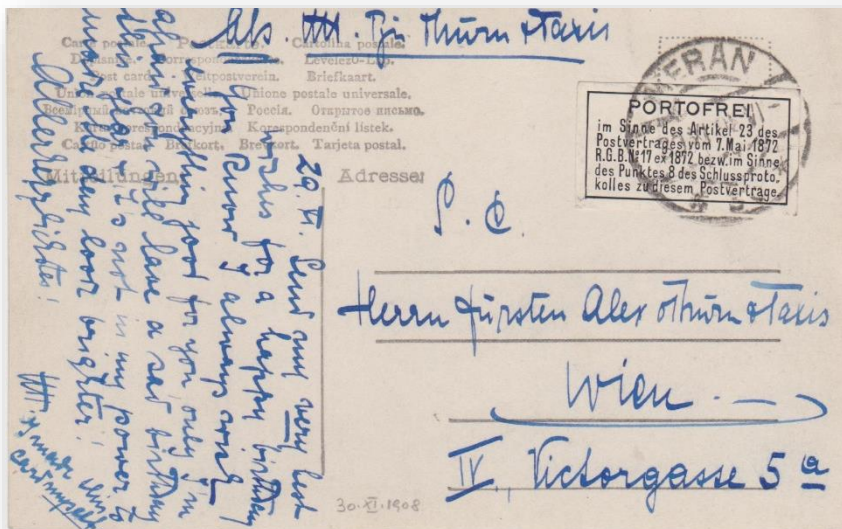 Abs. Thurn & Taxis
Carte postale. Postkarte. Cartolina postale.
Levelező-Lap.
Post card. Weltpostverein. Briefkaart.
Union postale universelle. Unione postale universale.
Всемірный союзъ. Россія. Открытое письмо.
Korespondenční lístek.
Brefkort. Tarjeta postal.
Mitteilungen
Adresse:
MERAN
PORTOFREI
im Sinne des Artikel 23 des
Postvertrages vom 7. Mai 1872
R.G.B. Nº 17 ex 1872 bezw. im Sinne
des Punktes 8 des Schlussproto-
kolles zu diesem Postvertrage.
S. D.
Herrn Fürsten Alex Thurn & Taxis
Wien. —
IV., Victorgasse 5a
29. XI. Send my very best
wishes for a happy birthday
You know I always wish
everything good for you, only I'm
afraid you will have a sad birthday
this year, it's not in my power to
make them look brighter!
Allerherzlichstes!
I made this
card myself
30.XI.1908